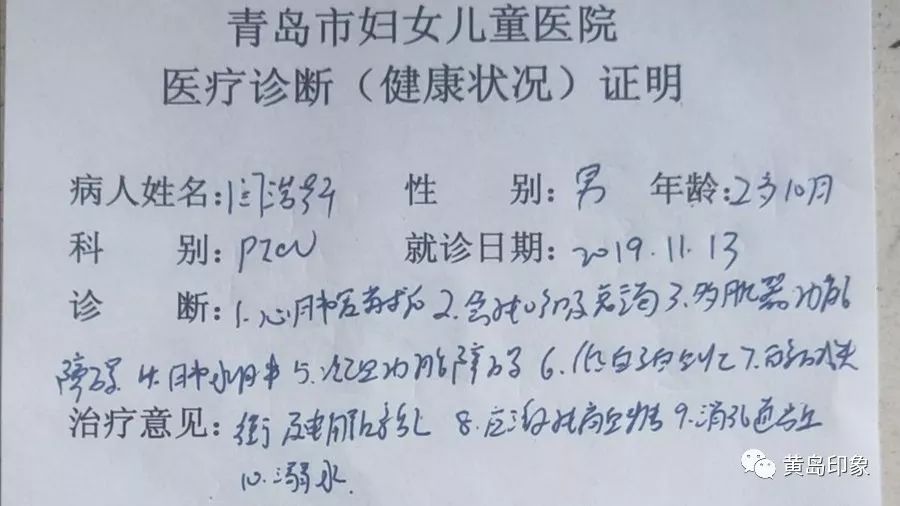 青岛市妇女儿童医院
医疗诊断（健康状况）证明
病人姓名:闫浩轩 性 别:男 年龄:2岁10月
科 别:PICU 就诊日期:2019.11.13
诊 断:1.心肺复苏术后 2.急性呼吸衰竭 3.多脏器功能
障碍 4.肺水肿 5.凝血功能障碍 6.低白蛋白血症 7.酸碱失
治疗意见:衡及电解质紊乱 8.应激性高血糖 9.消化道出血
10.溺水.
黄岛印象